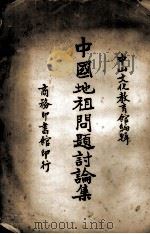 中山文化教育館編輯
中國地租問題討論集
商務印書館印行
www.mtoou.info